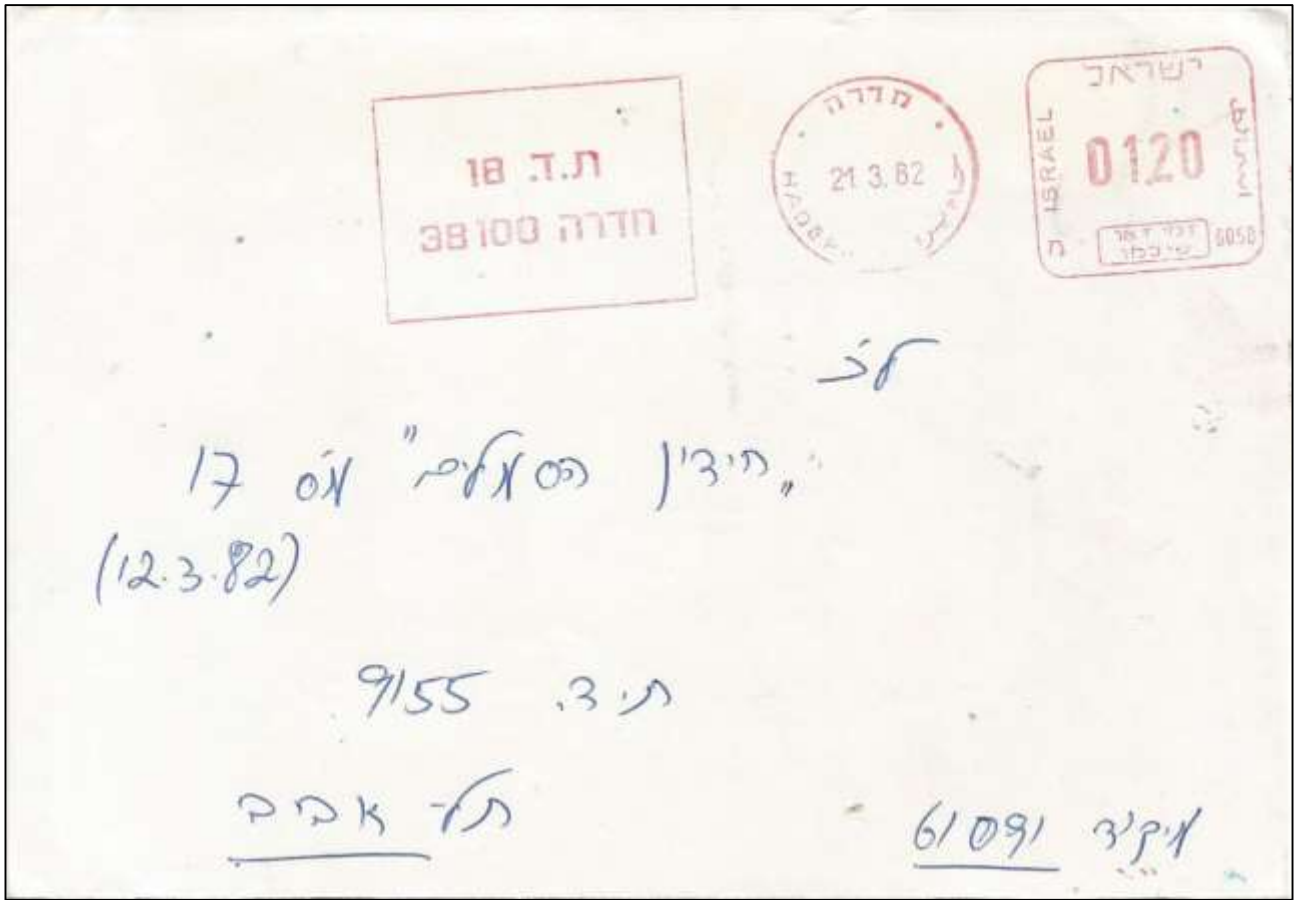 ת.ד. 18
חדרה 38100
חדרה
21.3.82
HADERA
ישראל
ISRAEL
0120
דמי דאר
שולמו
ה
6058
לכ'
"חידון הסמלים" מס 17
(12.3.82)
ת.ד. 9155
תל-אביב
מיקוד 61091